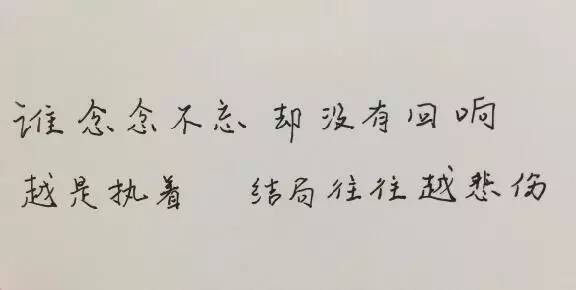 谁念念不忘却没有回响
越是执着 结局往往越悲伤